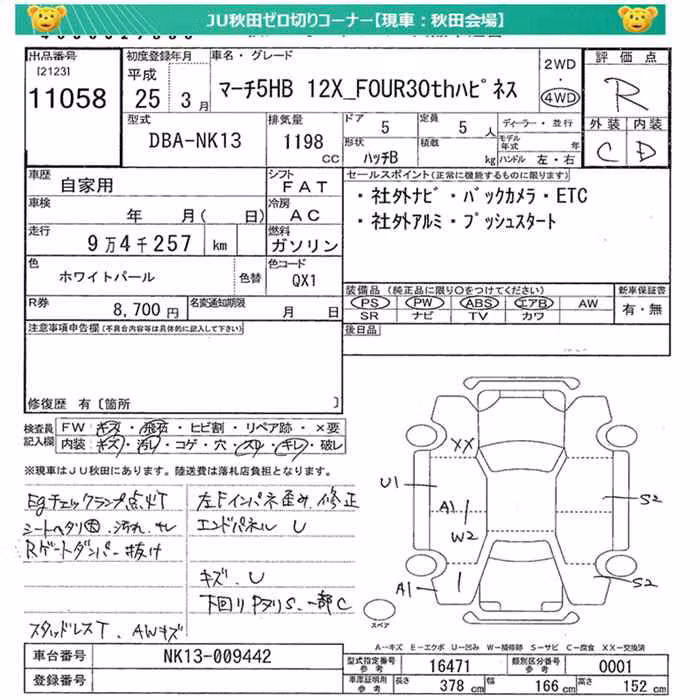 JU秋田ゼロ切りコーナー【現車：秋田会場】
出品番号 初度登録年月 車名・グレード 2WD 評価点
[2123] 平成
11058 25年 3月 マーチ5HB 12X_FOUR30thハピネス ・ 4WD R
型式 排気量 ドア 5 定員 5 人 ディーラー・並行 外装 内装
DBA-NK13 1198 cc 形状 ハッチB 積載 kg モデル年式 年 ハンドル 左・右 C D
車歴 自家用 シフト FAT セールスポイント(正常に機能するものに限ります)
車検 年 月( 日) 冷房 AC ・社外ナビ・バックカメラ・ETC
走行 9万4千257 km 燃料 ガソリン ・社外アルミ・プッシュスタート
色 ホワイトパール 色替 色コード QX1
装備品 (純正品に限り○をつけてください) 新車保証書
R券 8,700円 名変通知期限 月 日 PS PW ABS エアB AW 有・無
SR ナビ TV カワ
注意事項申告欄(不具合内容等は具体的に記入して下さい) 後日品
修復歴 有〔箇所 〕
検査員記入欄 FW キズ・飛石・ヒビ割・リペア跡・×要
内装 キズ・汚レ・コゲ・穴・スレ・キレ・破レ
※現車はJU秋田にあります。陸送費は落札店負担となります。
Egチェックランプ点灯 左Fインパネ歪み、修正
シートヘタリ大、汚れ、キレ エンドパネル U
Rゲートダンパー抜け
キズ、U
下回りPヌリS、一部C
スタッドレスT、AWキズ
XX
U1
A1
W2
S2
A1
S2
スペア
A－キズ E－エクボ U－凹み W－補修跡 S－サビ C－腐食 XX－交換済
車台番号 NK13-009442 型式指定番号 参考 16471 類別区分番号 参考 0001
登録番号 車庫証明用 参考 長さ 378 cm 幅 166 cm 高さ 152 cm